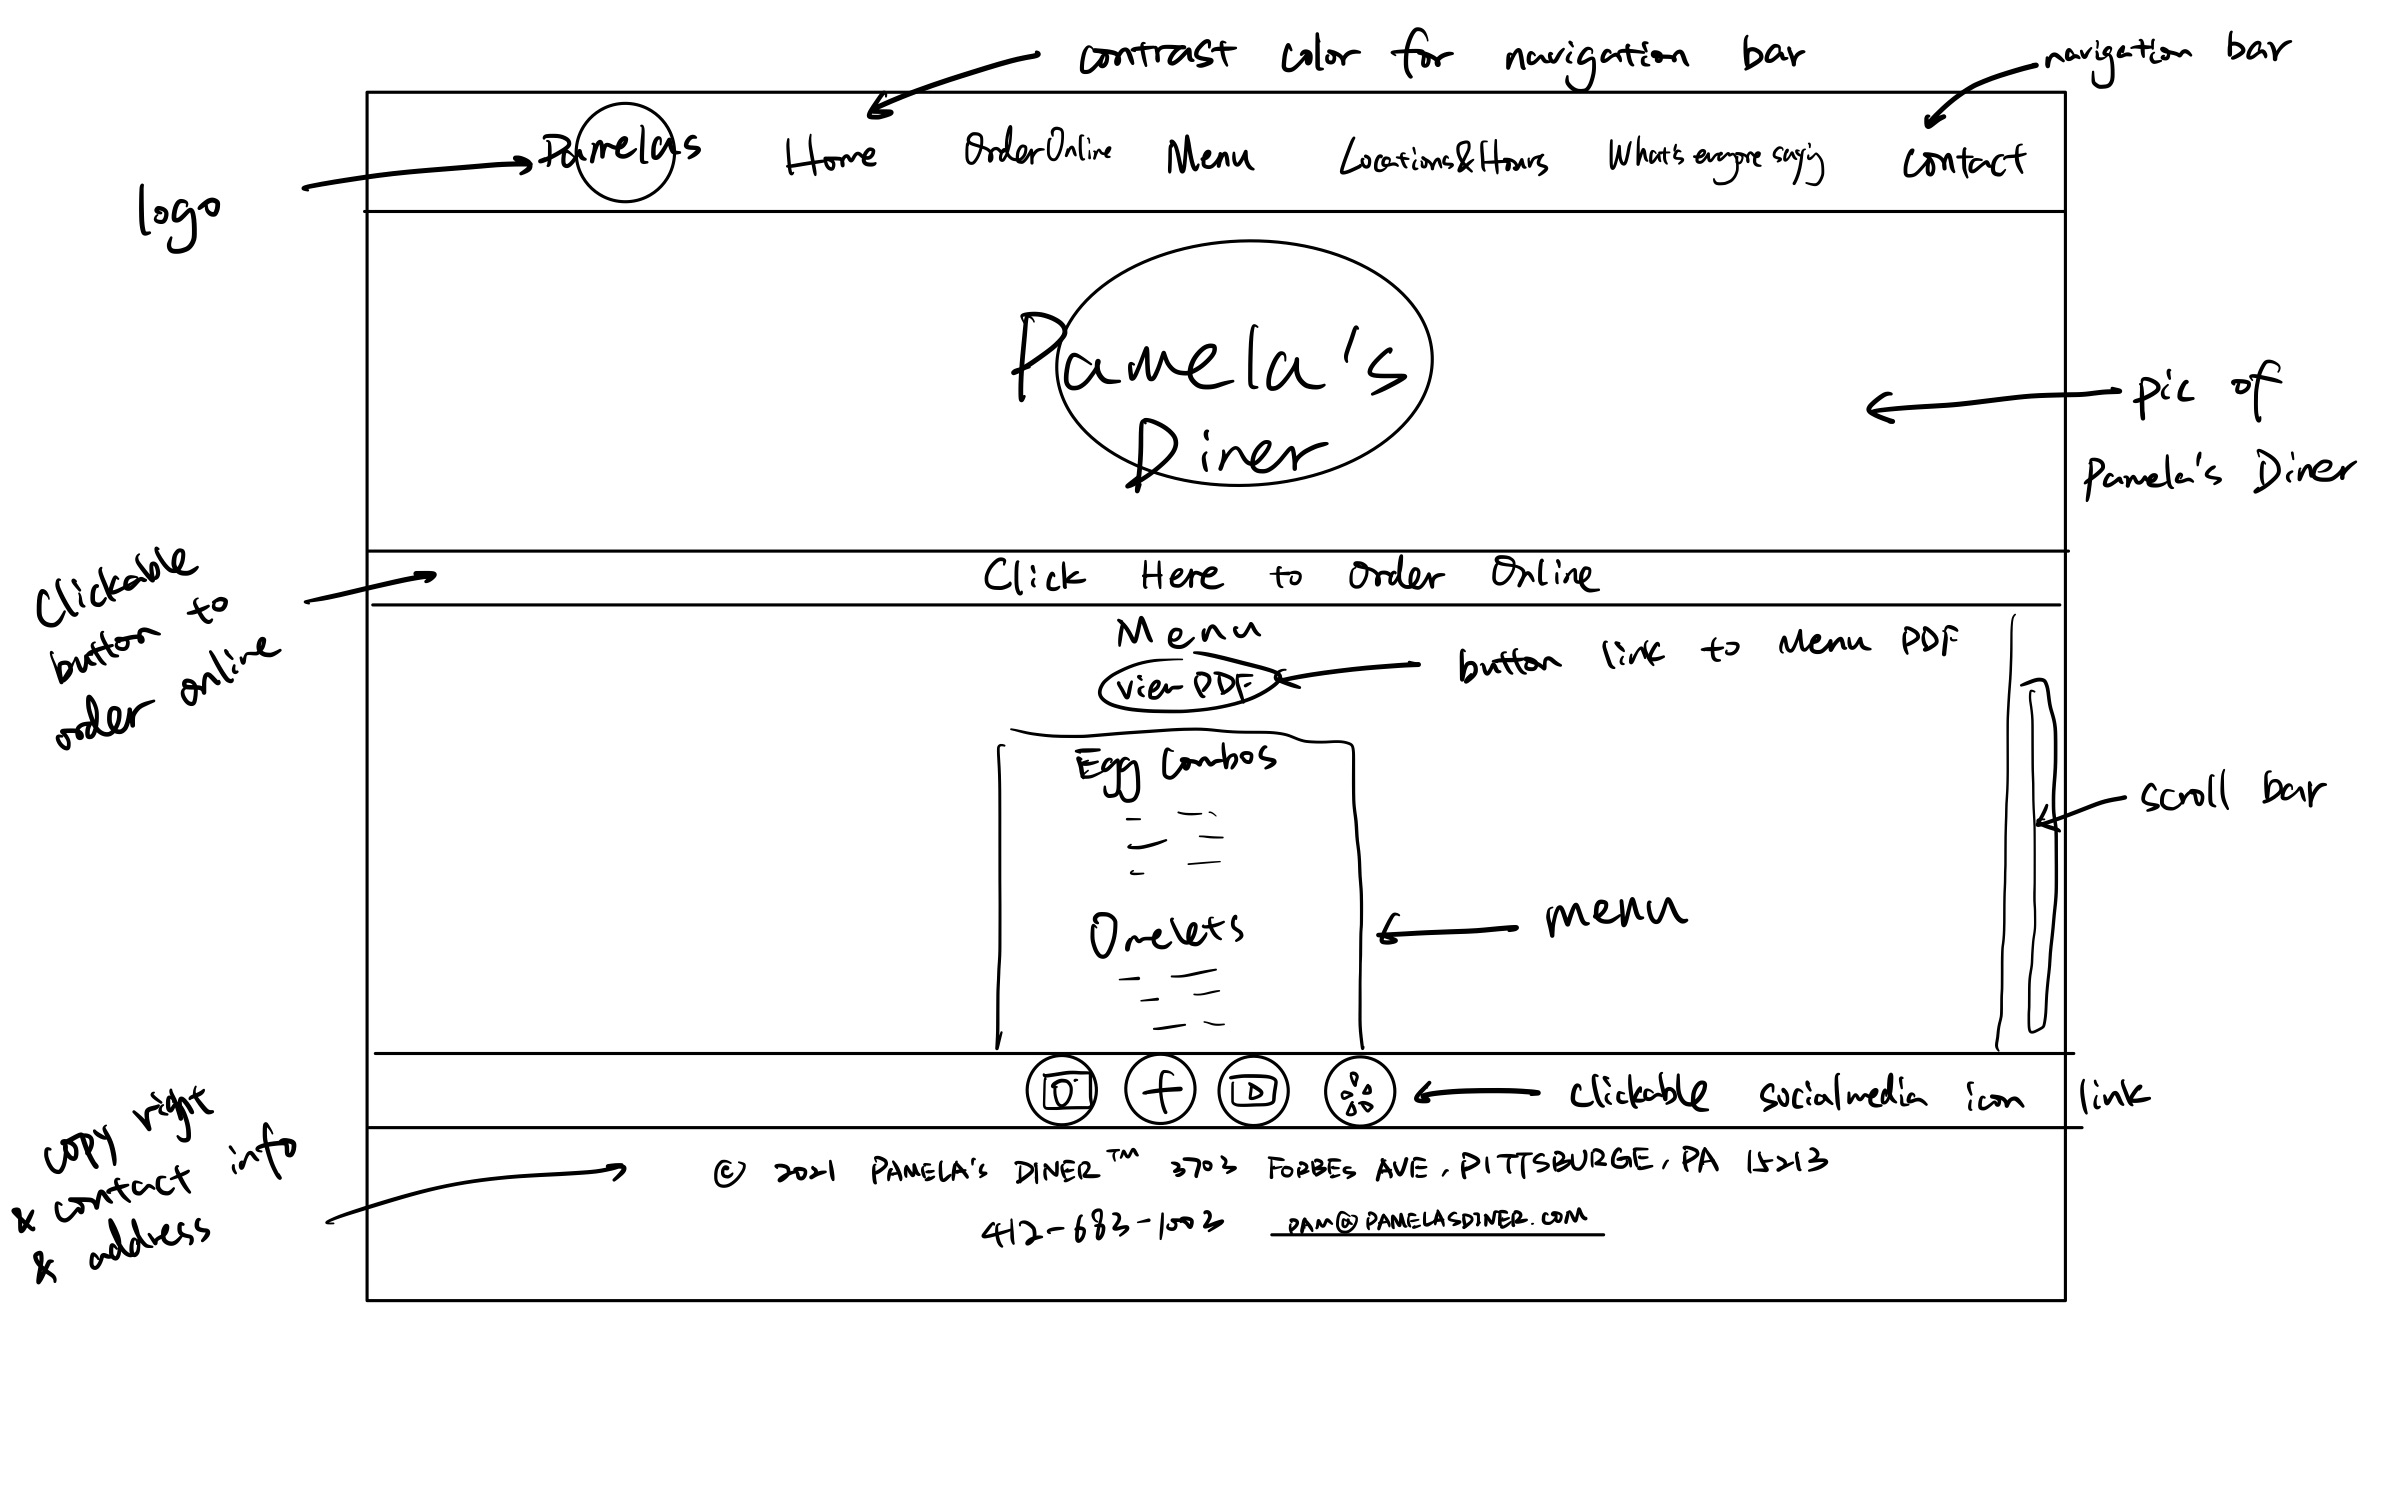 contrast color for navigation bar
navigation bar
logo
Pamelas Home Order Online Menu Locations&Hours What's everyone saying contact
Pamela's
Diner
pic of
Pamela's Diner
Clickable
button to
order online
Click Here to Order Online
Menu
view PDF
button link to Menu PDF
Egg Combos
scroll bar
Omelets
menu
clickable socialmedia icon link
copy right
& contact info
& address
© 2021 PAMELA'S DINER™ 3703 FORBES AVE, PITTSBURGE, PA 15213
412-683-1003 PAM@PAMELASDINER.COM